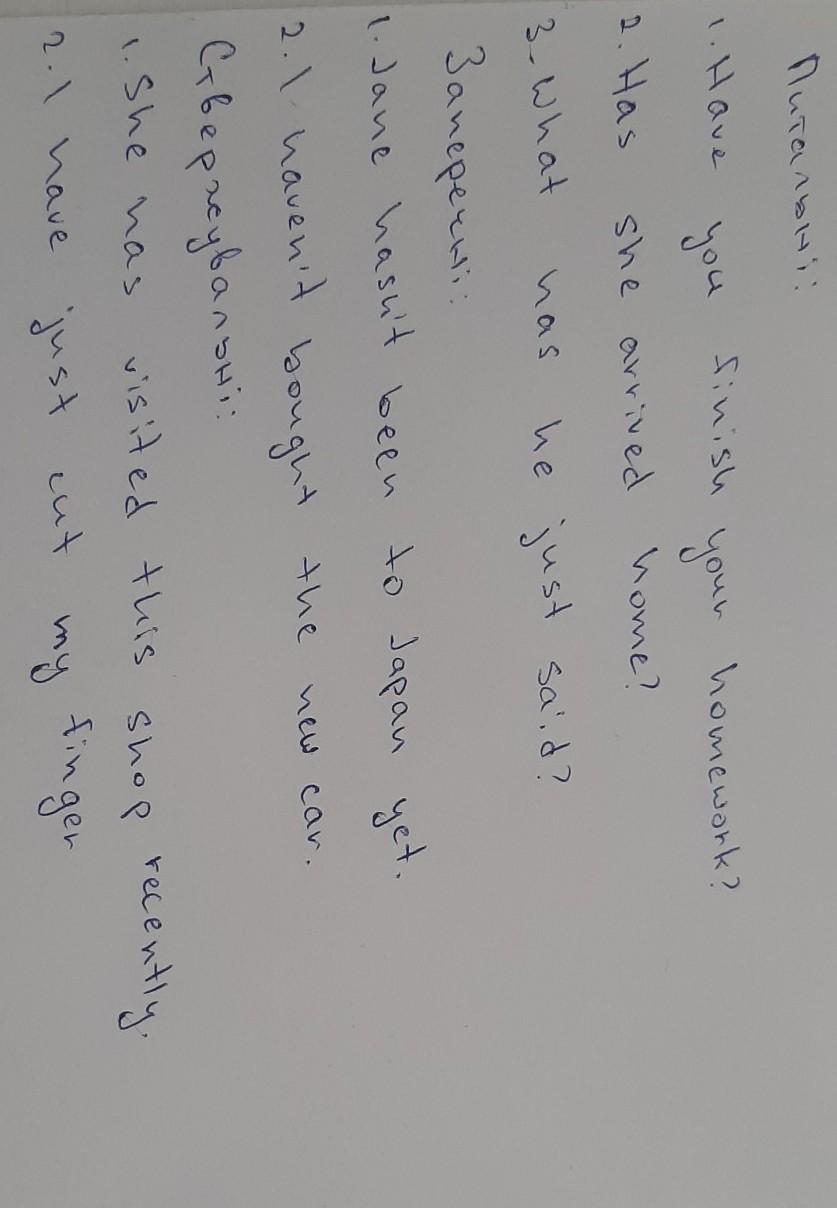 Питальні:
1. Have you finish your homework?
2. Has she arrived home?
3. What has he just said?
Заперечні:
1. Jane hasn't been to Japan yet.
2. I haven't bought the new car.
Ствержувальні:
1. She has visited this shop recently.
2. I have just cut my finger